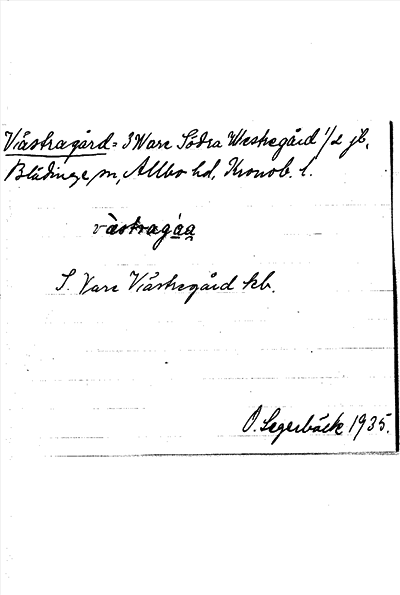 Västragård = 3 Ware Södra Westregård 1/2 jb,
Blädinge sn, Allbo hd, Kronob. l.
västragåa
S. Vare Västregård kb.
O. Segerbäck 1935.